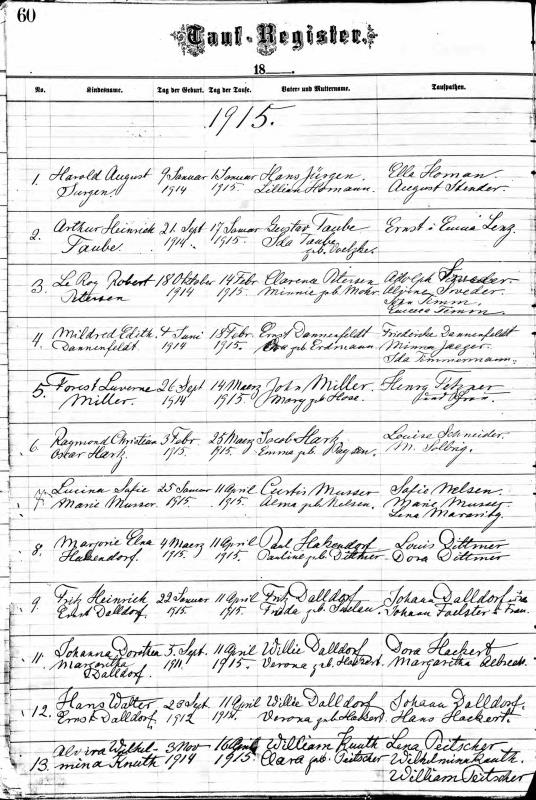 60
Tauf-Register.
18
No. Kindesname. Tag der Geburt. Tag der Taufe. Vater- und Muttername. Taufpathen.
1915.
1. Harold August 9 Januar Januar Hans Jürgen. Ella Homan
Jurgen. 1914 1915. Lillian Homann. August Stender.
2. Arthur Heinrich 21 Sept 17 Januar Gustav Taube Ernst & Emma Lenz
Taube. 1914 1915. Ida Taube
geb.
3. Le Roy Robert 18 Oktober 14 Febr Clarence Petersen Adolph
Petersen 1914 1915. Minnie geb Mohr Sveder
Timm
Timm
4. Mildred Edith 4 Juni 15 Febr. Ernst Dannenfeldt Friedericke Dannenfeldt
Dannenfeldt 1914 1915. geb Erdmann Minna Jaeger
Ida Timmermann
5. Forest Luverne 26 Sept 14 Maerz John Miller. Henry Fetzner
Miller. 1914 1915. Mary geb Hose. und Frau.
6. Raymond Christian 3 Febr 25 Maerz Jacob Hark Louise Schneider.
Oscar Hark 1915. 1915. Emma geb M. Solbrig.
7. Lucina Sofie 25 Januar 11 April Curtis Musser Sofie Nelsen.
Marie Musser 1915. 1915. Alma geb Nelsen. Marie Musser
Lena
8. Marjorie Elna 4 Maerz 11 April Paul Hakendorf Louis Dittmer
Hakendorf. 1915. 1915. Pauline geb Dittmer Dora Dittmer
9. Fritz Heinrich 22 Januar 11 April Fritz Dalldorf Johann Dalldorf
Ernst Dalldorf. 1915 1915. Frieda geb. Johann Faelster & Frau.
11. Johanna Dorothea 5. Sept. 11 April Willie Dalldorf Dora Hackert
Margaritha 1911 1915. Verona geb. Hackert. Margaritha
Dalldorf.
12. Hans Walter 23 Sept 11 April Willie Dalldorf Johann Dalldorf.
Ernst Dalldorf, 1912 Verona geb Hackert. Hans Hackert.
Alvira Wilhel- 3 Nov 16 April William Knuth Lena Peitscher
13. mina Knuth 1914 1915. Clara geb. Peitscher Wilhelmina Knuth.
William Peitscher